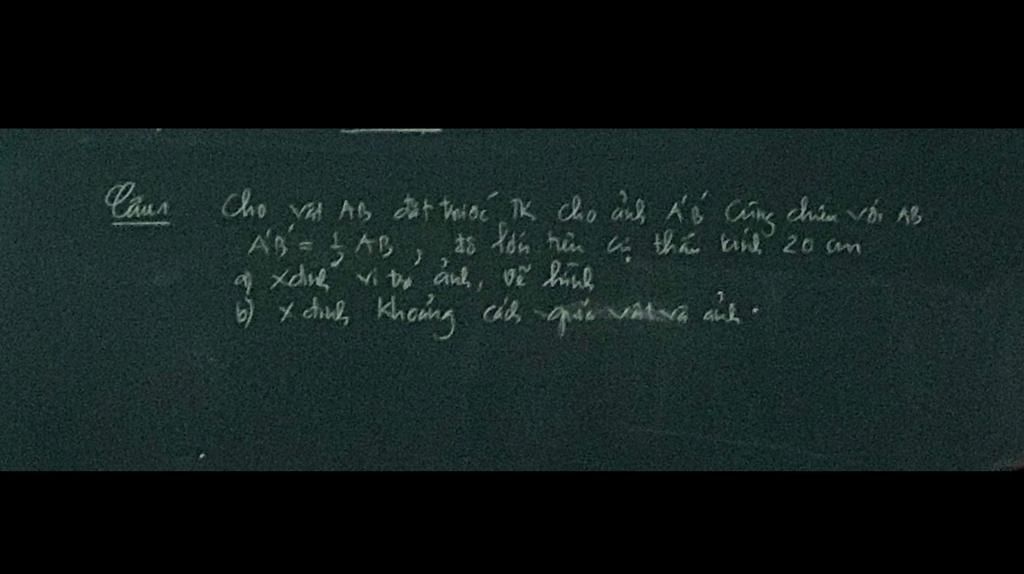 Câu 1 Cho vật AB đặt trước TK cho ảnh A'B' cùng chiều với AB
A'B' = 1/2 AB, độ lớn tiêu cự thấu kính 20 cm
a) xđịnh vị trí ảnh, vẽ hình
b) xđịnh khoảng cách giữa vật và ảnh.